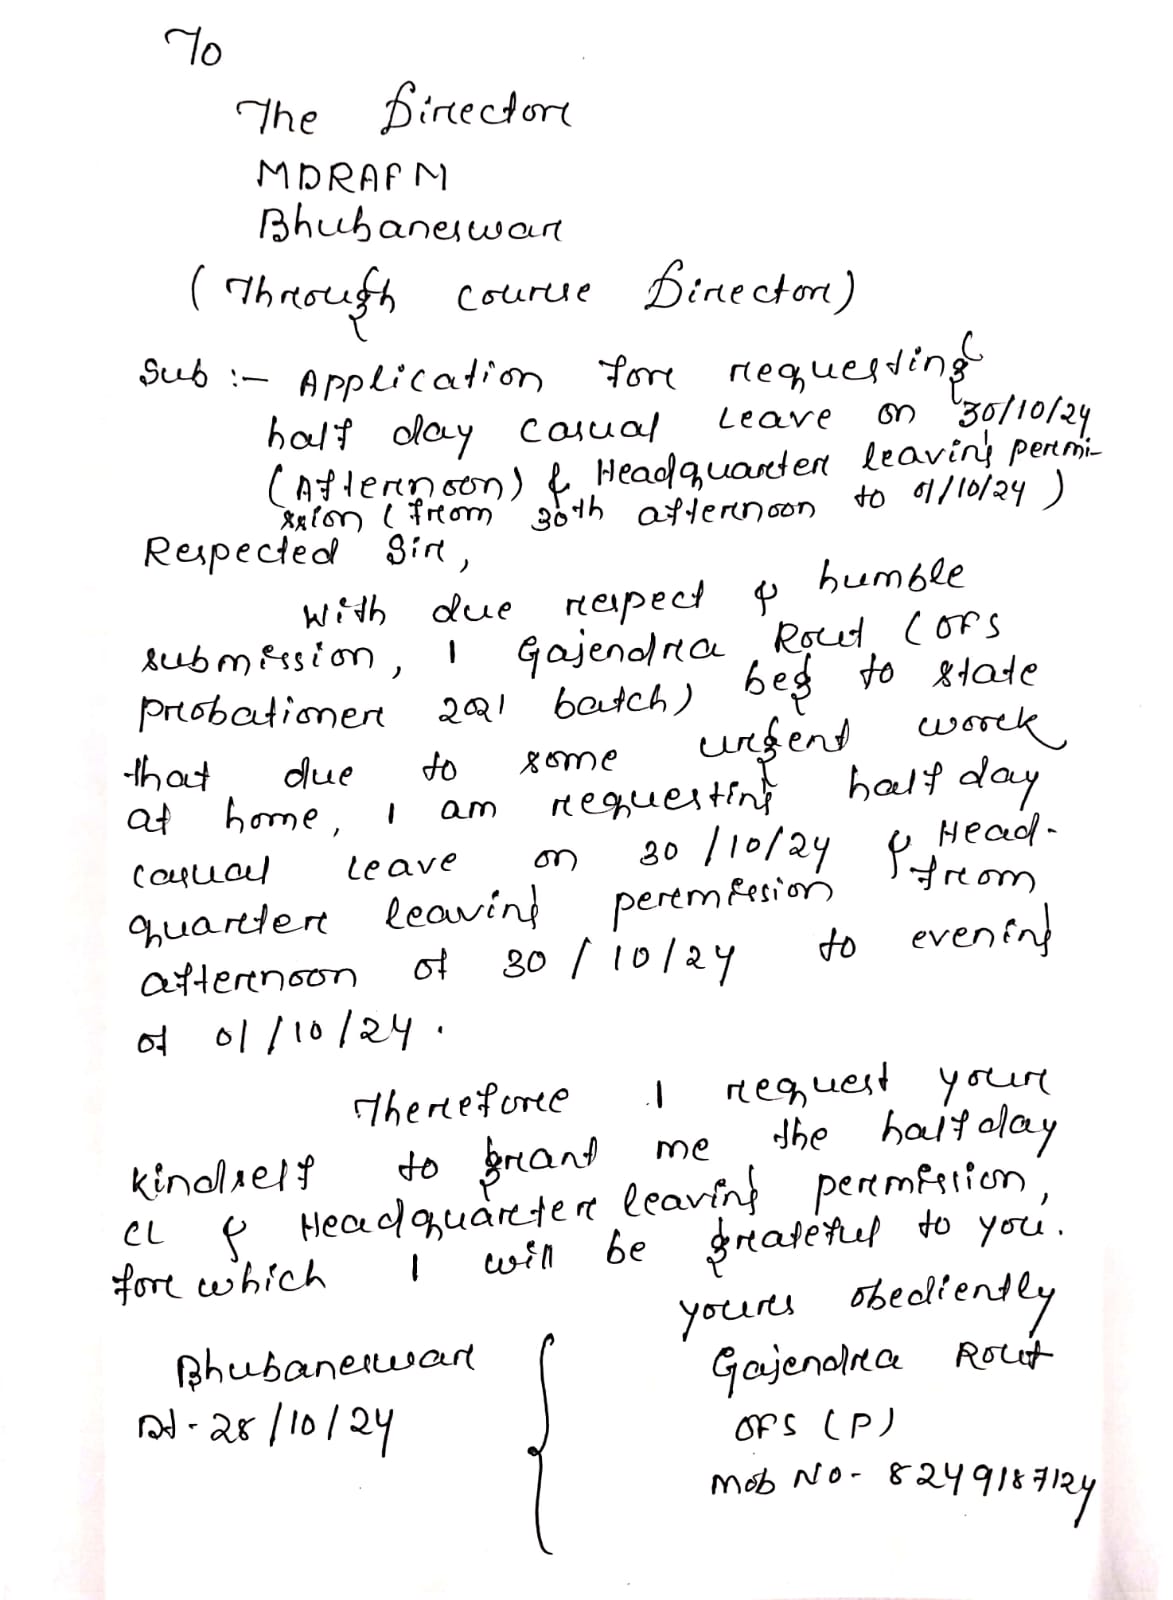 To
The Director
MDRAFM
Bhubaneswar
(Through course Director)
Sub :- Application for requesting
half day casual Leave on 30/10/24
(Afternoon) & Headquarter leaving permi-
ssion (from 30th afternoon to 01/10/24)
Respected Sir,
With due respect & humble
submission, I Gajendra Rout (OFS
probationer 2021 batch) beg to state
that due to some urgent work
at home, I am requesting half day
casual Leave on 30/10/24 & Head-
quarter leaving permission from
afternoon of 30/10/24 to evening
of 01/10/24.
Therefore I request your
kindself to grant me the half day
CL & Headquarter leaving permission,
for which I will be grateful to you.
yours obediently
Bhubaneswar
Gajendra Rout
Dt - 28/10/24
OFS (P)
Mob No - 8249187124